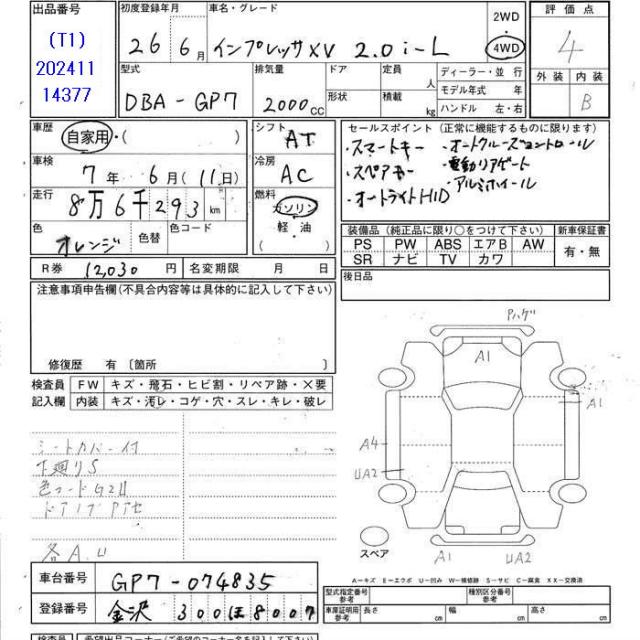 出品番号
(T1)
202411
14377
初度登録年月
26 6月
車名・グレード
インプレッサXV 2.0i-L
2WD
4WD
評価点
4
外装 内装
B
型式
DBA-GP7
排気量
2000CC
ドア
形状
定員
人
積載
kg
ディーラー・並行
モデル年式 年
ハンドル 左・右
車歴
自家用・( )
車検
7年 6月(11日)
走行
8万6千293km
色
オレンジ
色替
色コード
シフト
AT
冷房
AC
燃料
ガソリン
軽油
セールスポイント(正常に機能するものに限ります)
・スマートキー ・オートクルーズコントロール
・スペアキー ・電動リアゲート
・オートライトHID ・アルミホイール
装備品(純正品に限り○をつけて下さい)
PS PW ABS エアB AW
SR ナビ TV カワ
新車保証書
有・無
R券 12,030円
名変期限 月 日
後日品
注意事項申告欄(不具合内容等は具体的に記入して下さい)
修復歴 有〔箇所
検査員
記入欄
FW キズ・飛石・ヒビ割・リペア跡・X要
内装 キズ・汚レ・コゲ・穴・スレ・キレ・破レ
シートカバー付
下廻りS
色コードG2U
各A.U
Pハゲ
A1
A1
A4
UA2
スペア
A1
UA2
A-キズ E-エクボ U-凹み W-補修跡 S-サビ C-腐食 XX-交換済
車台番号
GP7-074835
登録番号
金沢 300ほ8007
型式指定番号
参考
種別区分番号
参考
車庫証明用
参考
長さ
幅
高さ
検査員
希望出品コーナー(ご希望のコーナー名を記入して下さい)